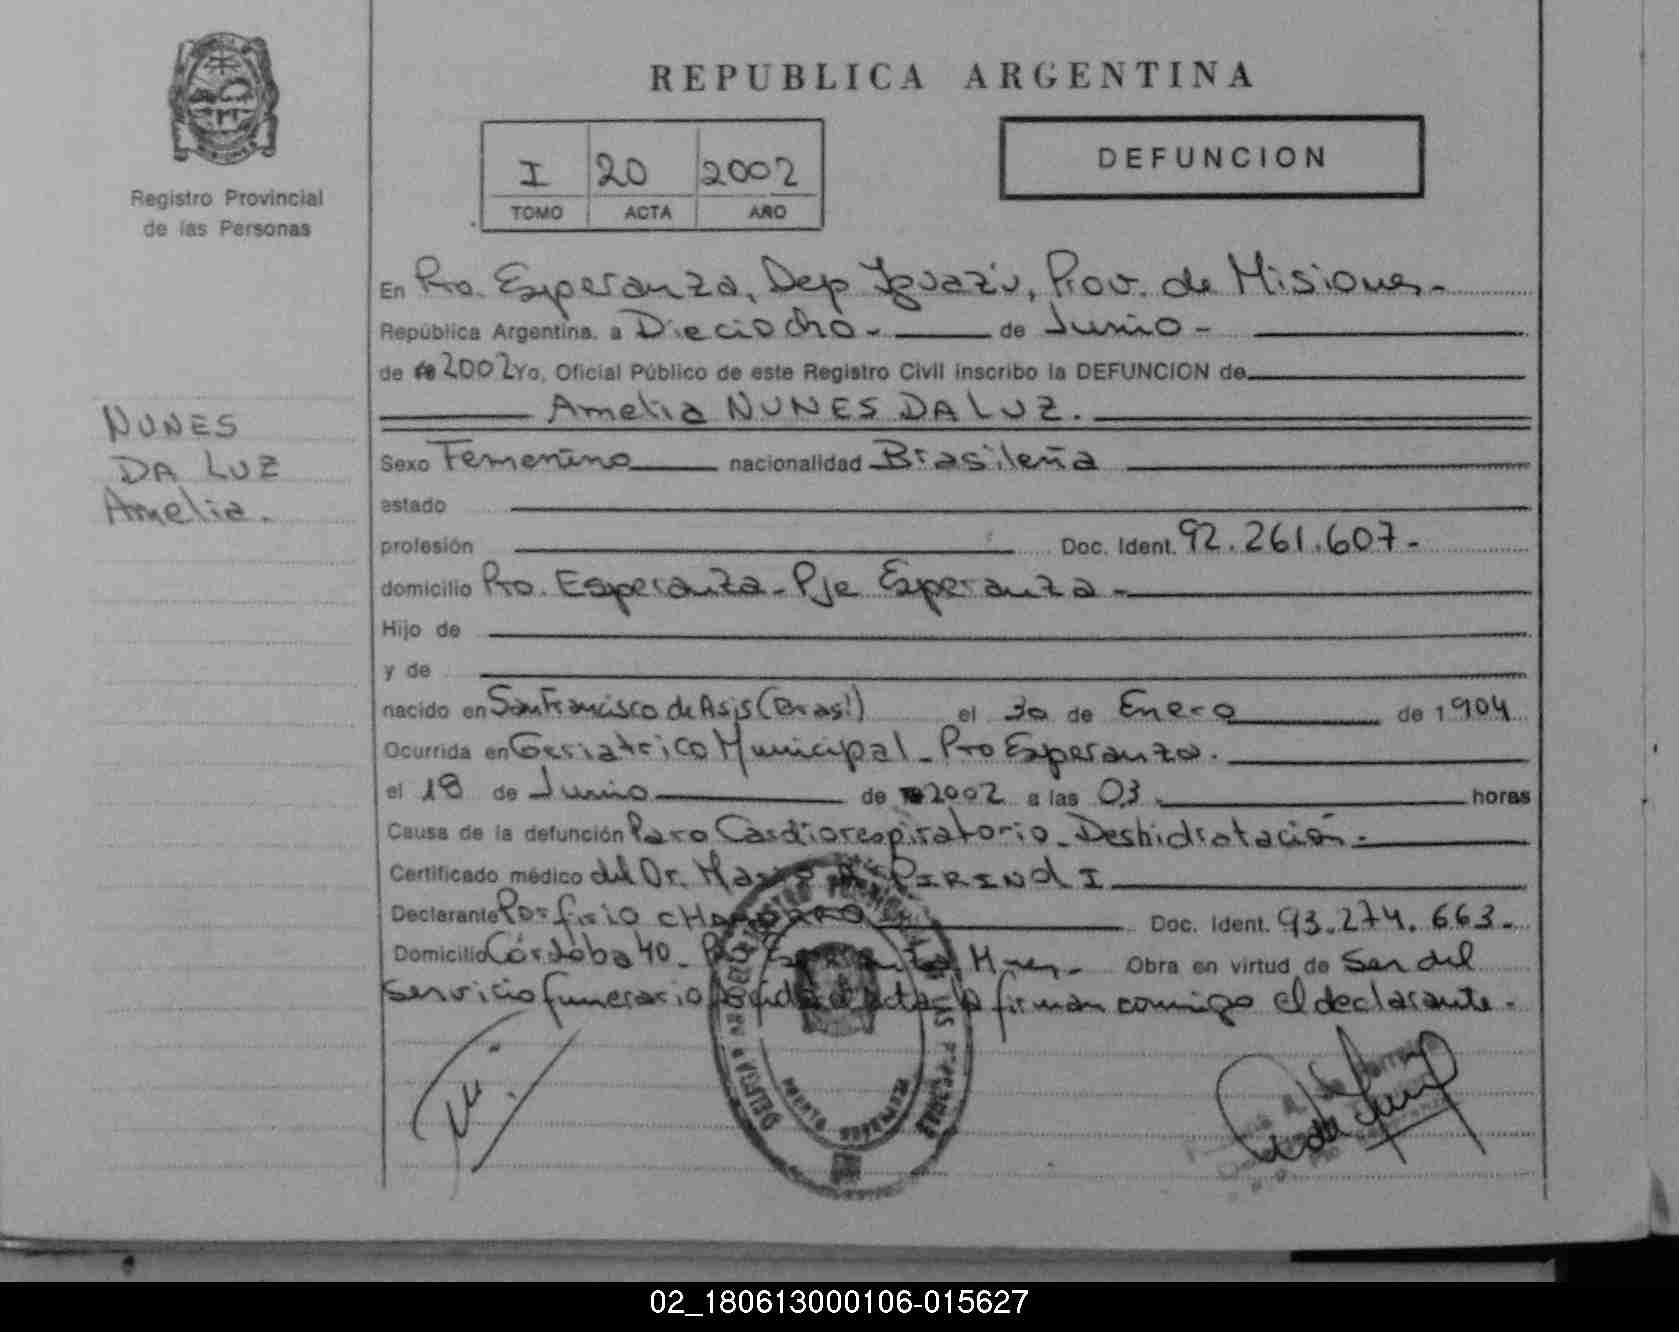 REPUBLICA ARGENTINA
Registro Provincial
de las Personas
I 20 2002
TOMO ACTA AÑO
DEFUNCION
En Pto. Esperanza, Dep Iguazú, Prov. de Misiones.-
República Argentina, a Dieciocho - de Junio -
de 2002 Yo, Oficial Público de este Registro Civil inscribo la DEFUNCION de
Amelia NUNES DA LUZ.
NUNES
DA LUZ
Amelia.
Sexo Femenino nacionalidad Brasileña
estado
profesión Doc. Ident. 92.261.607.-
domicilio Pto. Esperanza - Pje Esperanza -
Hijo de
y de
nacido en San Francisco de Asis (Brasil) el 30 de Enero de 1904
Ocurrida en Geriatrico Municipal - Pto Esperanza.
el 18 de Junio de 2002 a las 03 horas
Causa de la defunción Paro Cardiorespiratorio - Deshidratación -
Certificado médico del Dr. PIRINDI
Declarante Porfirio CHAMORRO Doc. Ident. 93.274.663.-
Domicilio Córdoba 40 - Pto Esperanza, Mnes.- Obra en virtud de Ser del
servicio funerario leída el acta la firman conmigo el declarante.-
02_180613000106-015627